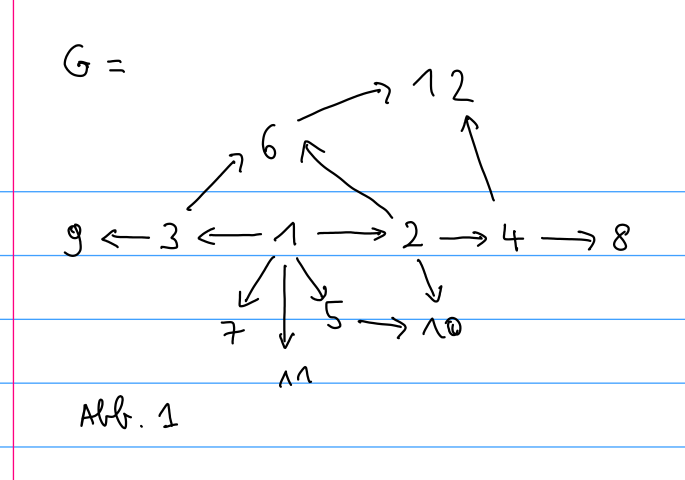 G =
12
6
9 ← 3 ← 1 → 2 → 4 → 8
7 5 → 10
11
Abb. 1